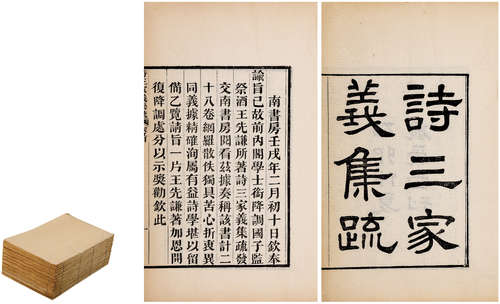 詩三家
義集疏
南書房壬戌年二月初十日欽奉
諭旨已故前內閣學士銜降調國子監
祭酒王先謙所著詩三家義集疏發
交南書房閱看茲據奏稱該書計二
十八卷網羅散佚獨具苦心折衷異
同義據精確洵屬有益詩學堪以留
備乙覽請旨一片王先謙著加恩開
復降調處分以示獎勸欽此